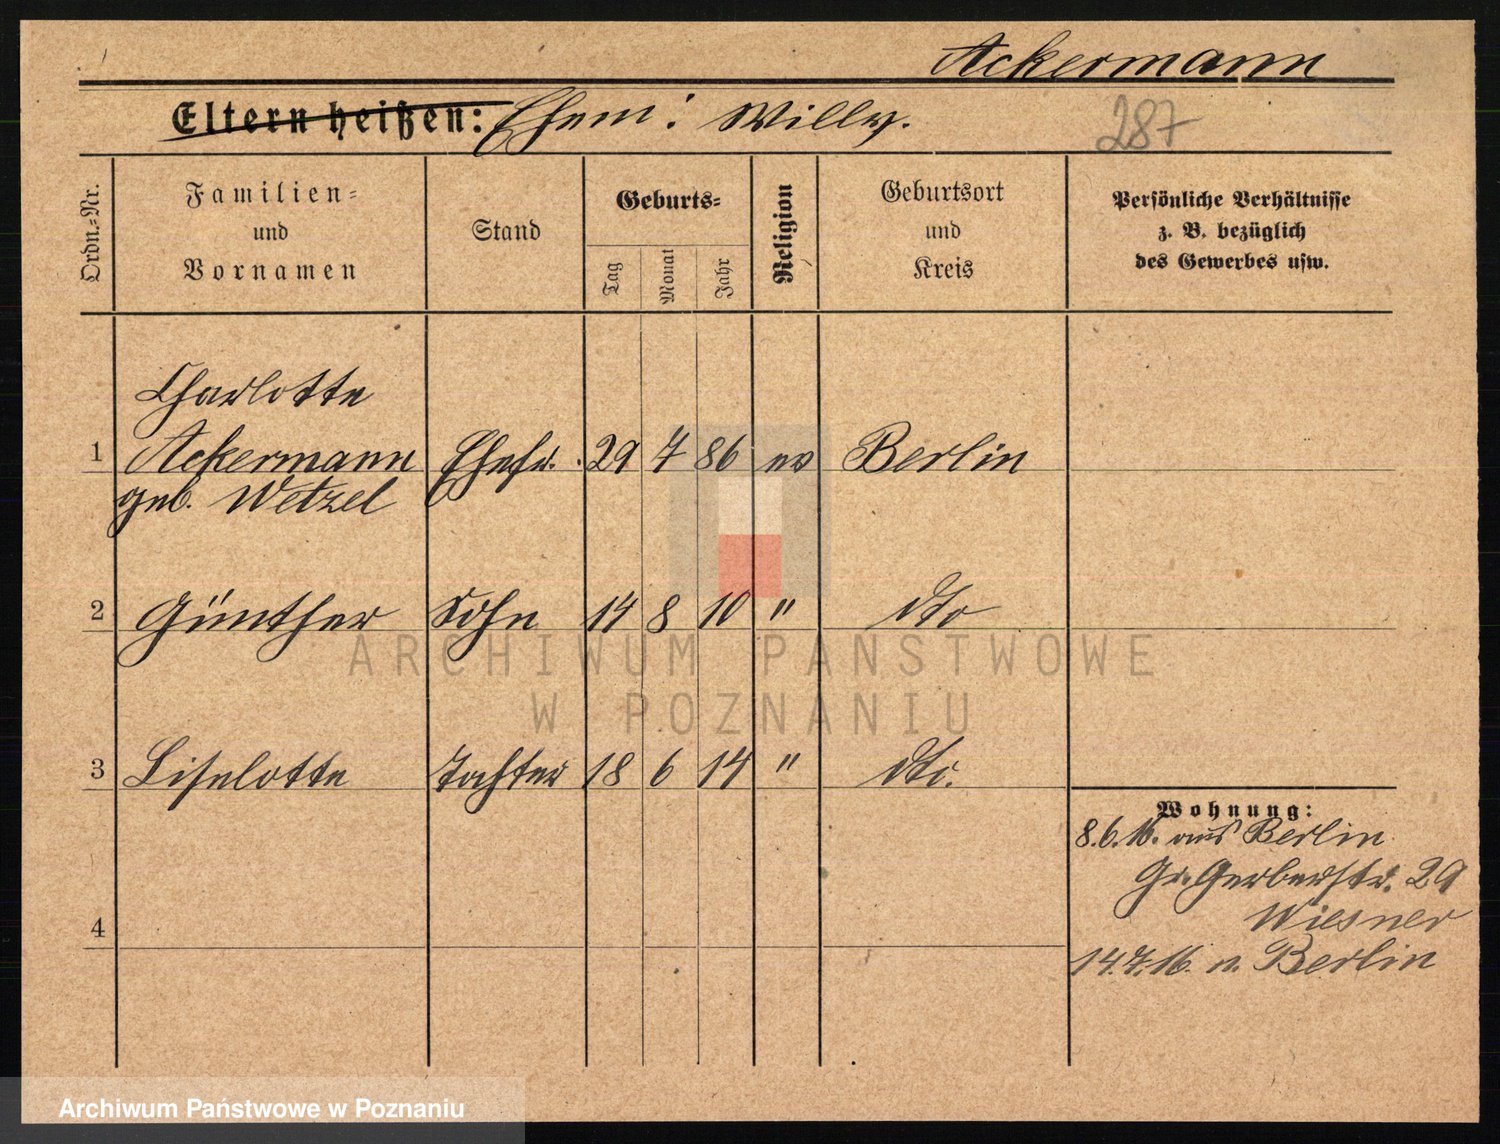 Ackermann
Eltern heißen: Ehem: Willy.
287
Ordn.-Nr.
Familien-
und
Vornamen
Stand
Geburts-
Tag
Monat
Jahr
Religion
Geburtsort
und
Kreis
Persönliche Verhältnisse
z. B. bezüglich
des Gewerbes usw.
Charlotte
1 Ackermann Ehefr. 29 7 86 ev Berlin
geb. Wetzel
2 Günther Sohn 14 8 10 " dto
3 Liselotte Tochter 18 6 14 " dto.
Wohnung:
8.6.16. aus Berlin
Gr. Gerberstr. 29
Wiesner
4
14.7.16. n. Berlin
ARCHIWUM PAŃSTWOWE
W POZNANIU
Archiwum Państwowe w Poznaniu